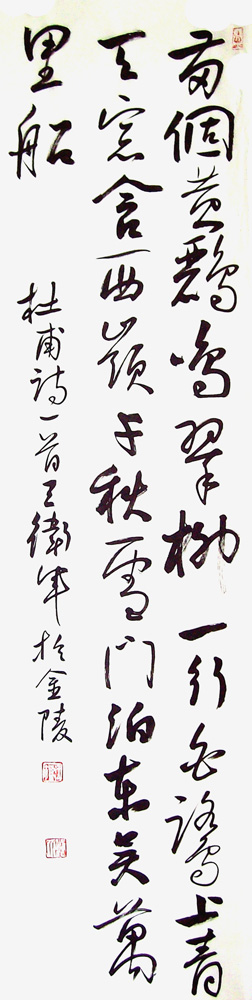 兩個黃鸝鳴翠柳一行白鷺上青
天窓含西嶺千秋雪門泊東吳萬
里船
杜甫詩一首王衛軍於金陵